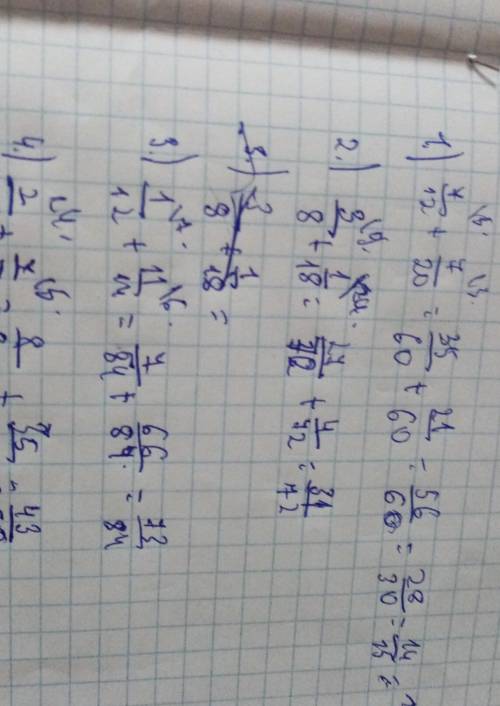 1.) 7/12 \5· + 7/20 \3· = 35/60 + 21/60 = 56/60 = 28/30 = 14/15 =
2.) 3/8 \9· + 1/18 \4· = 27/72 + 4/72 = 31/72
3.) 3/8 + 1/18 =
3.) 1/12 \7· + 11/14 \6· = 7/84 + 66/84 = 73/84
4.)